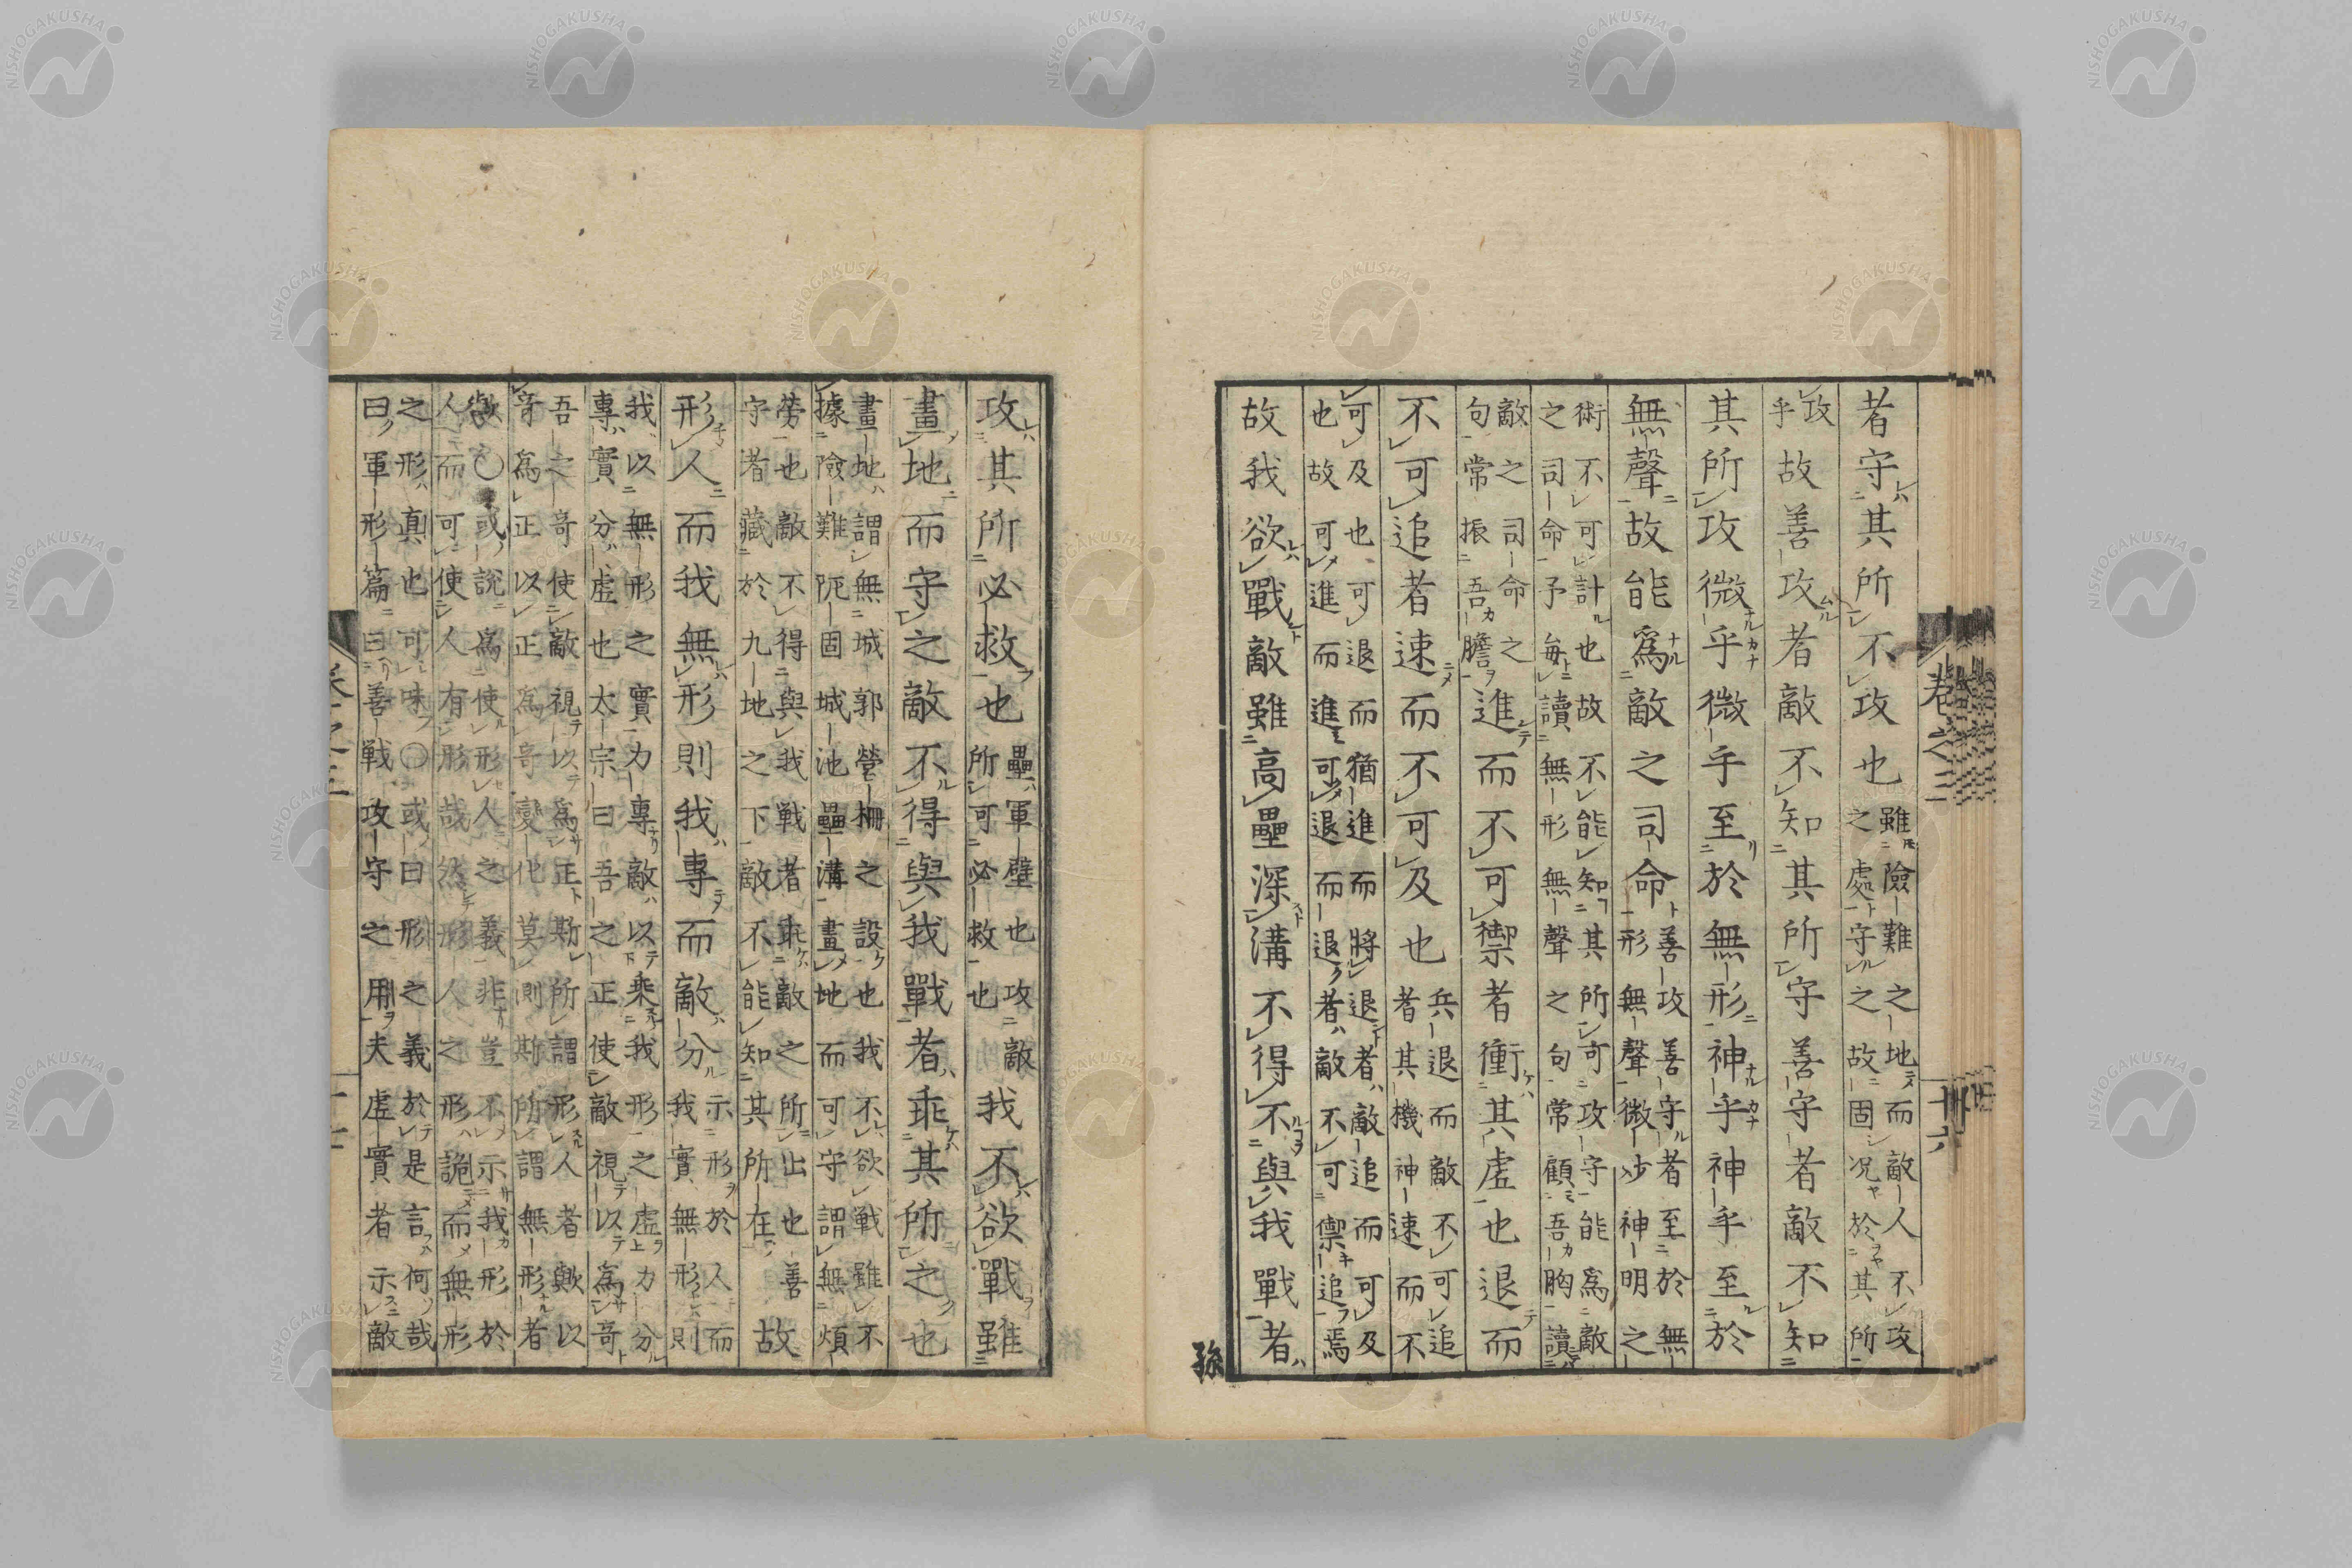 卷之三 十六
者守其所不攻也雖險難之地而敵人不攻
之處守之故固况於其所
攻
乎故善攻者敵不知其所守善守者敵不知
其所攻微乎微乎至於無形神乎神乎至於
無聲故能爲敵之司命善攻善守者至於無
形無聲微妙神明之
術不可計也故不能知其所可攻守能爲敵
之司命予毎讀無形無聲之句常顧吾胸讀
敵之司命之
句常振吾膽進而不可禦者衝其虚也退而
不可追者速而不可及也兵退而敵不可追
者其機神速而不
可及也可退而猶進而將退者敵追而可及
也故可進而進可退而退者敵不可禦追焉
故我欲戰敵雖高壘深溝不得不與我戰者
孫
攻其所必救也壘軍壁也攻敵
所可必救也我不欲戰雖
畫地而守之敵不得與我戰者乖其所之也
畫地謂無城郭營柵之設也我不欲戦雖不
據險難阨固城池壘溝畫地而可守謂無煩
勞也敵不得與我戦者乖敵之所出也善
守者藏於九地之下敵不能知其所在故
形人而我無形則我專而敵分示形於人而
我實無形則
我以無形之實力專敵以乘我形之虚力分
專實分虚也太宗曰吾之正使敵視以爲奇
吾之奇使敵視以爲正斯所謂形人者歟以
奇爲正以正爲奇變化莫測斯所謂無形者
歟〇或説爲使形人之義非豈不示我形於
人而可使人有形哉然形人之形詭而無形
之形真也可味〇或曰形之義於是言何哉
曰軍形篇曰善戦攻守之用夫虚實者示敵